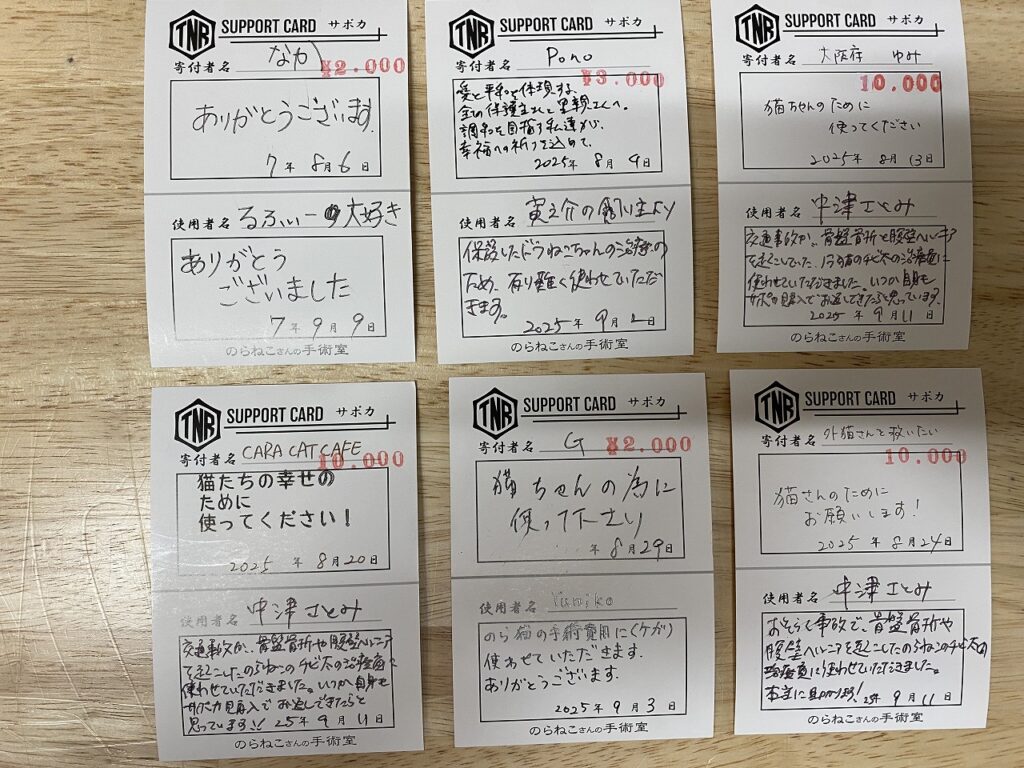 TNR SUPPORT CARD サポカ
寄付者名 なか
¥2.000
ありがとうございます
7年 8月 6日
使用者名 るふぃー 大好き
ありがとう
ございました
7年 9月 9日
のらねこさんの手術室
TNR SUPPORT CARD サポカ
寄付者名 Pono
¥3.000
愛と平和を体現する、
全ての保護主さんと里親さんへ。
調和を目指す私達が、
幸福への祈りを込めて。
2025年 8月 9日
使用者名 寅之介の飼い主より
保護したドラねこちゃんの治療の
ため、有り難く使わせていただ
きます。
2025年 9月 2日
のらねこさんの手術室
TNR SUPPORT CARD サポカ
寄付者名 大阪府 ゆみ
10.000
猫ちゃんのために
使ってください
2025年 8月 13日
使用者名 中津さとみ
交通事故か、骨盤骨折と腹壁ヘルニア
を起こしていた、のらねこのチビ太の治療費に
使わせていただきました。いつか自身も
サポカ購入でお返しできたらと思っています。
2025年 9月 11日
のらねこさんの手術室
TNR SUPPORT CARD サポカ
寄付者名 CARA CAT CAFE
10.000
猫たちの幸せの
ために
使ってください！
2025年 8月 20日
使用者名 中津さとみ
交通事故か、骨盤骨折や腹壁ヘルニア
を起こしたのらねこのチビ太の治療費に
使わせていただきました。いつか自身も
サポカ購入でお返しできたらと
思っています!! 25年 9月 11日
のらねこさんの手術室
TNR SUPPORT CARD サポカ
寄付者名 G
¥2.000
猫ちゃんの為に
使って下さい
年 8月 29日
使用者名 Yumiko
のら猫の手術費用に(ケガ)
使わせていただきます。
ありがとうございます。
2025年 9月 3日
のらねこさんの手術室
TNR SUPPORT CARD サポカ
寄付者名 外猫さんを救いたい
10.000
猫さんのために
お願いします！
2025年 8月 24日
使用者名 中津さとみ
おそらく事故で、骨盤骨折や
腹壁ヘルニアを起こしたのらねこのチビ太の
治療費に使わせていただきました。
本当に助かります! 25年 9月 11日
のらねこさんの手術室